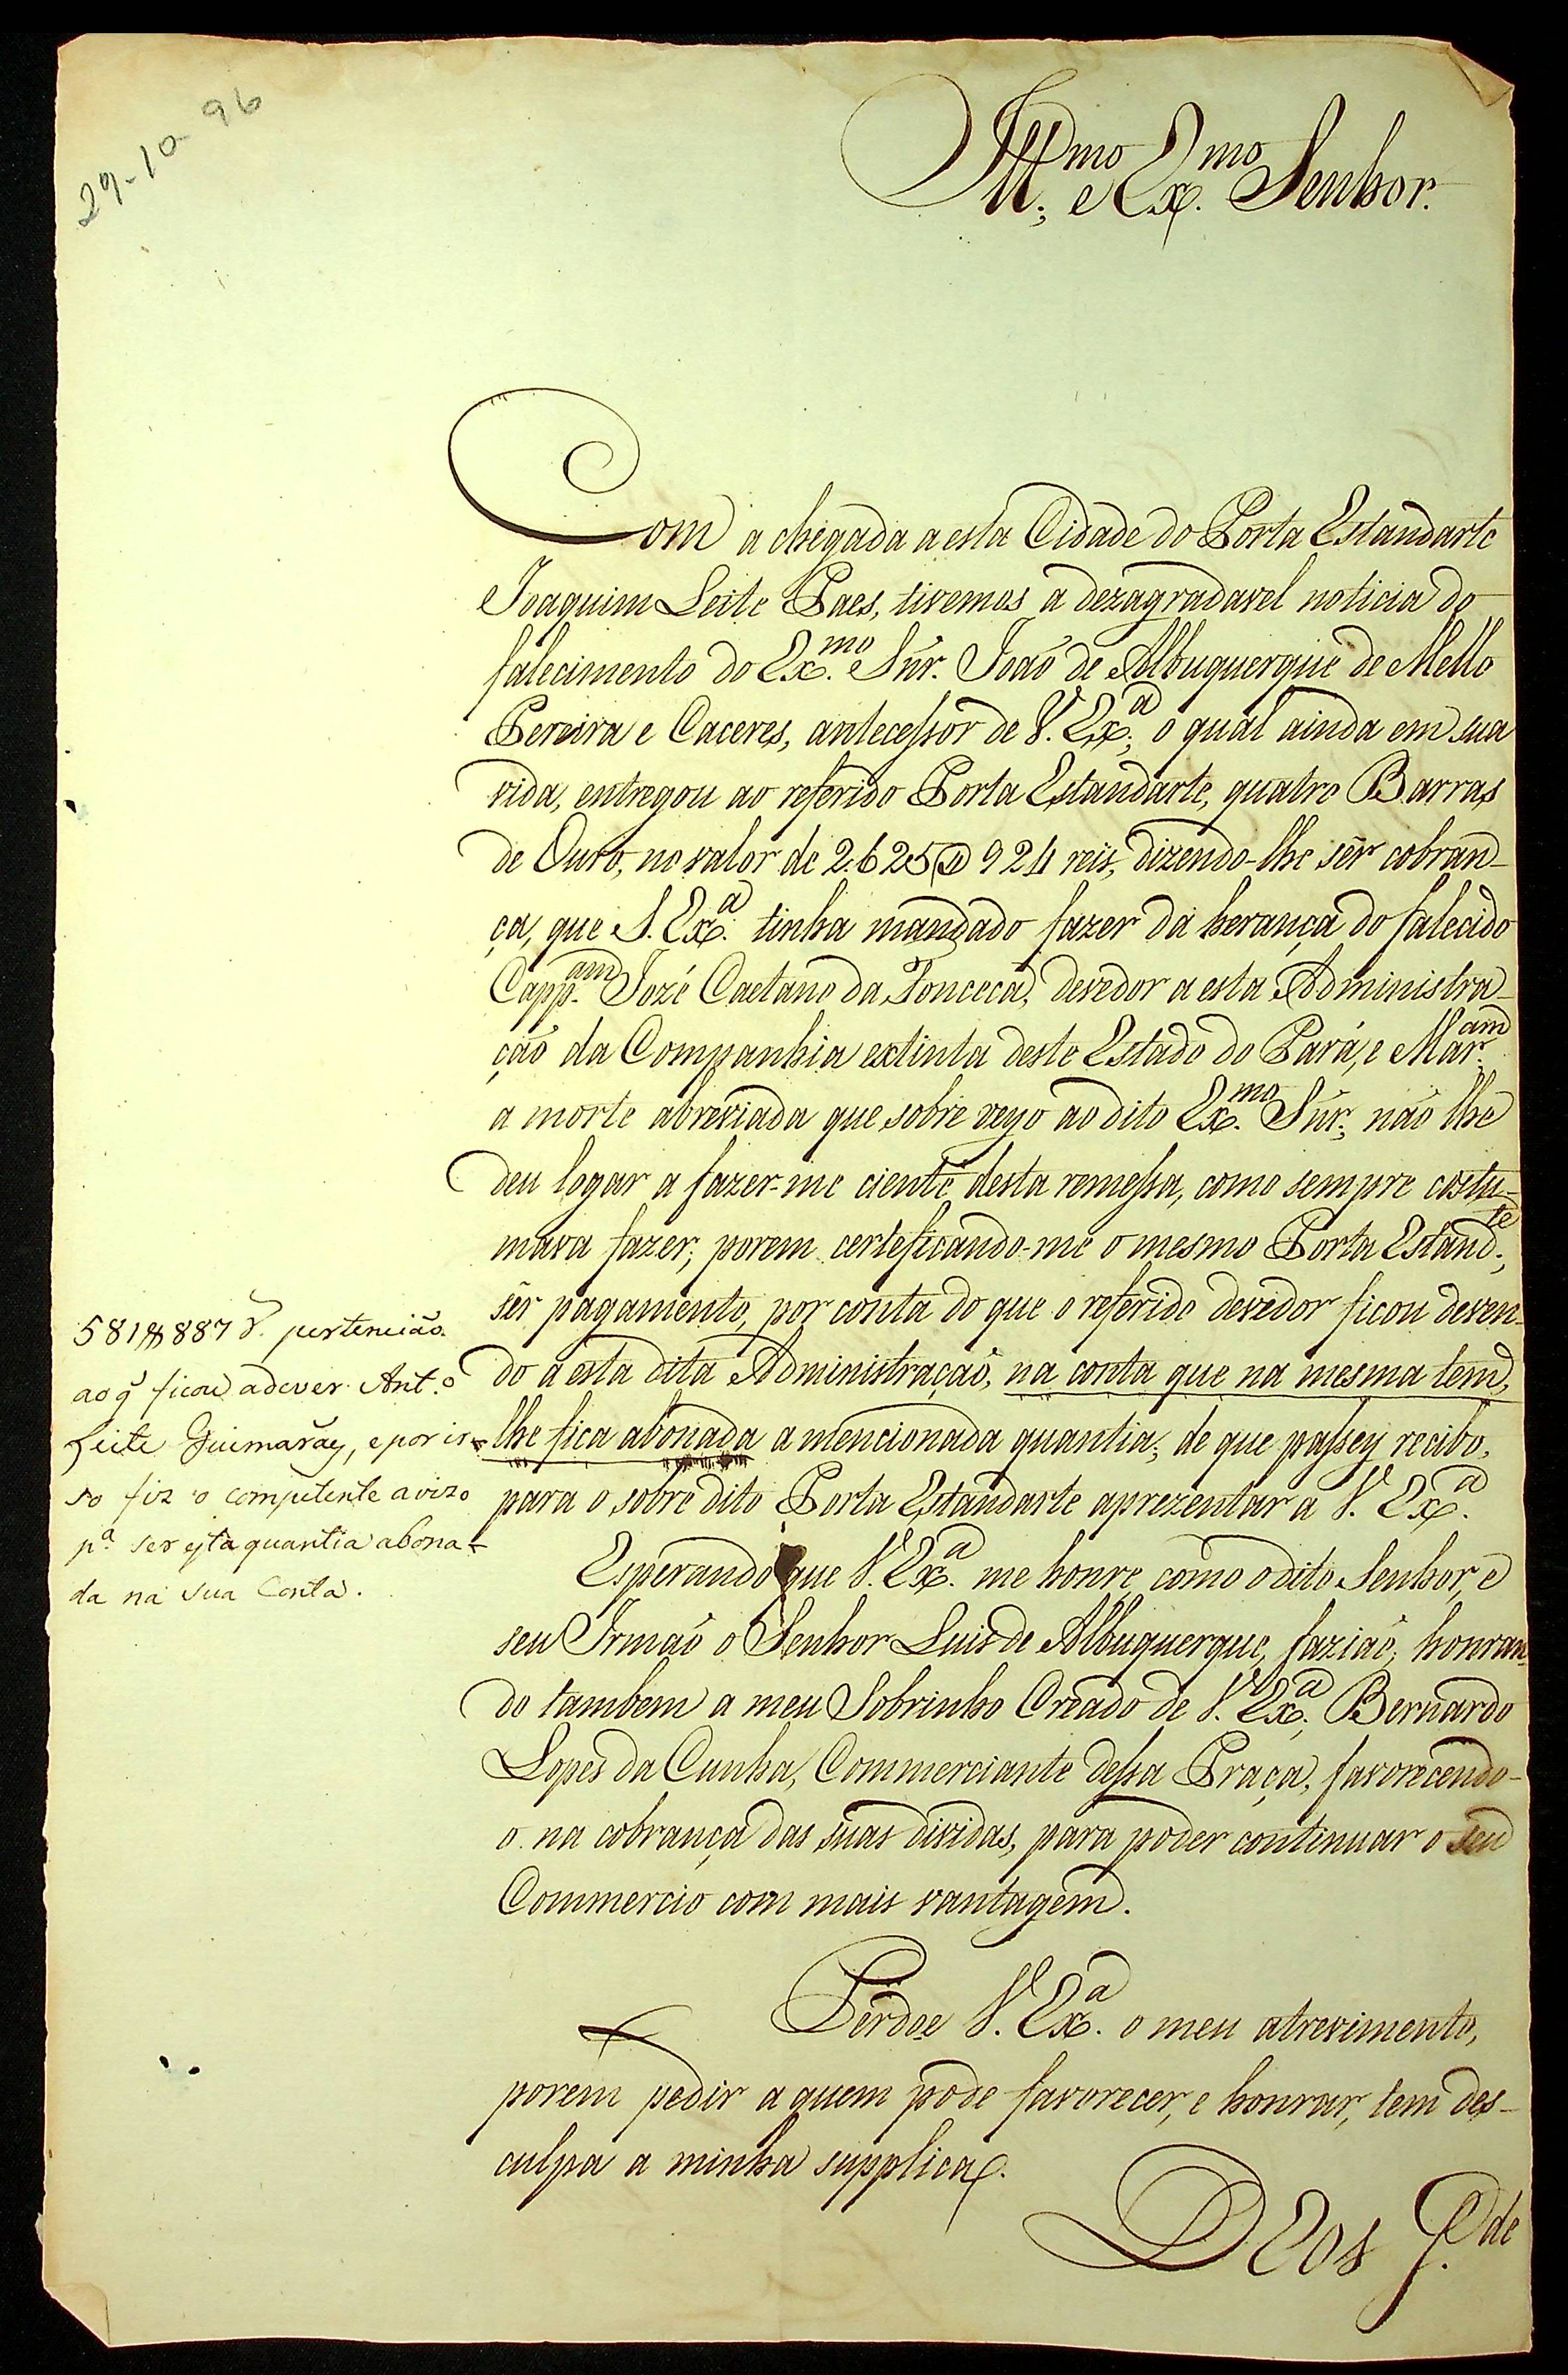 29-10-96
Ill.mo e Ex.mo Senhor.
Com a chegada a esta Cidade do Porta Estandarte
Joaquim Leite Paes, tivemos a dezagradavel noticia do
falecimento do Ex.mo Sñr. João de Albuquerque de Mello
Pereira e Caceres, antecessor de V. Ex.a, o qual ainda em sua
vida, entregou ao referido Porta Estandarte, quatro Barras
de Ouro, no valor de 2.625$924 reis, dizendo-lhe sêr cobran-
ça, que S. Ex.a tinha mandado fazer da herança do falecido
Capp.am Jozé Caetano da Fonceca, devedor a esta Administra-
ção da Companhia extinta deste Estado do Pará, e Mar.am
a morte abreviada que sobre veyo ao dito Ex.mo Sñr; não lhe
deu logar a fazer-me ciente desta remessa, como sempre costu-
mava fazer; porem certeficando-me o mesmo Porta Estand.te,
sêr pagamento, por conta do que o referido devedor ficou deven-
do a esta dita Administração, na conta que na mesma tem,
lhe fica abonada a mencionada quantia; de que passey recibo,
para o sobre dito Porta Estandarte aprezentar a V. Ex.a
581$887 r. pertencião
ao q̃ ficou a dever Ant.o
Leite Guimarães, e por is-
so fiz o competente avizo
p.a ser esta quantia abona-
da na sua Conta.
Esperando que V. Ex.a me honre, como o dito Senhor, e
seu Irmão o Senhor Luis de Albuquerque, fazião; honran-
do tambem a meu Sobrinho Creado de V. Ex.a, Bernardo
Lopes da Cunha, Commerciante dessa Praça, favorecendo-
o na cobrança das suas dividas, para poder continuar o seu
Commercio com mais vantagem.
Perdoe V. Ex.a o meu atrevimento,
porem pedir a quem pode favorecer, e honrar, tem des-
culpa a minha supplica.
Deos G.de